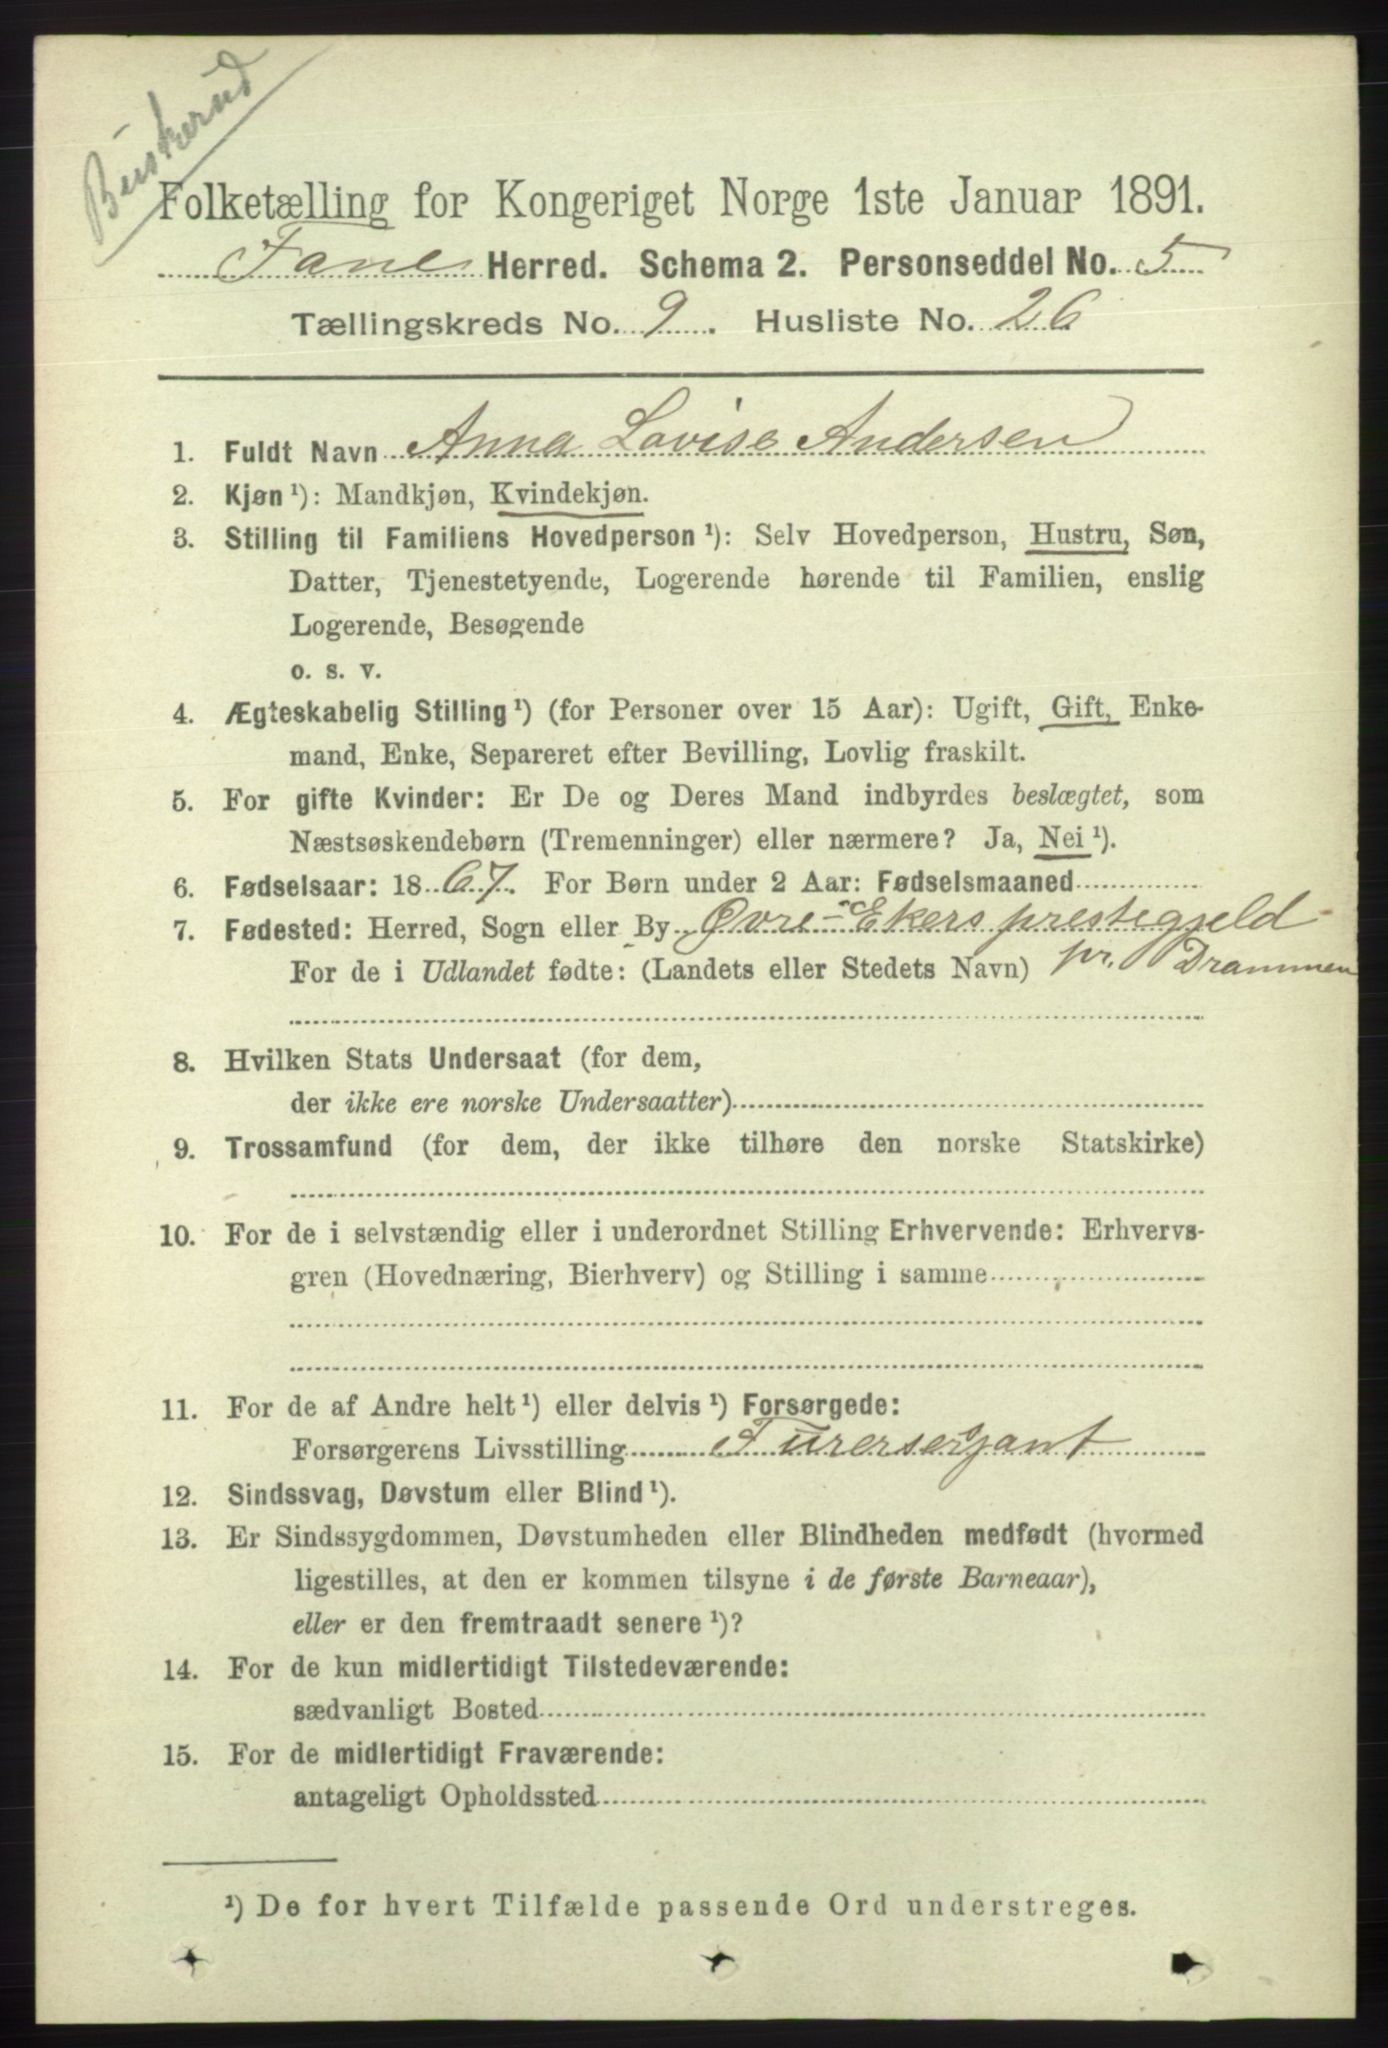 Buskerud
Folketælling for Kongeriget Norge 1ste Januar 1891.
Fane Herred. Schema 2. Personseddel No. 5
Tællingskreds No. 9. Husliste No. 26
1. Fuldt Navn Anna Lovise Andersen
2. Kjøn ¹): Mandkjøn, Kvindekjøn.
3. Stilling til Familiens Hovedperson ¹): Selv Hovedperson, Hustru, Søn,
Datter, Tjenestetyende, Logerende hørende til Familien, enslig
Logerende, Besøgende
o. s. v.
4. Ægteskabelig Stilling ¹) (for Personer over 15 Aar): Ugift, Gift, Enke-
mand, Enke, Separeret efter Bevilling, Lovlig fraskilt.
5. For gifte Kvinder: Er De og Deres Mand indbyrdes beslægtet, som
Næstsøskendebørn (Tremenninger) eller nærmere? Ja, Nei ¹).
6. Fødselsaar: 1867. For Børn under 2 Aar: Fødselsmaaned
7. Fødested: Herred, Sogn eller By Øvre-Ekers prestegjeld
For de i Udlandet fødte: (Landets eller Stedets Navn) pr. Drammen
8. Hvilken Stats Undersaat (for dem,
der ikke ere norske Undersaatter)
9. Trossamfund (for dem, der ikke tilhøre den norske Statskirke)
10. For de i selvstændig eller i underordnet Stilling Erhvervende: Erhvervs-
gren (Hovednæring, Bierhverv) og Stilling i samme
11. For de af Andre helt ¹) eller delvis ¹) Forsørgede:
Forsørgerens Livsstilling Furersergant
12. Sindssvag, Døvstum eller Blind ¹).
13. Er Sindssygdommen, Døvstumheden eller Blindheden medfødt (hvormed
ligestilles, at den er kommen tilsyne i de første Barneaar),
eller er den fremtraadt senere ¹)?
14. For de kun midlertidigt Tilstedeværende:
sædvanligt Bosted
15. For de midlertidigt Fraværende:
antageligt Opholdssted
¹) De for hvert Tilfælde passende Ord understreges.